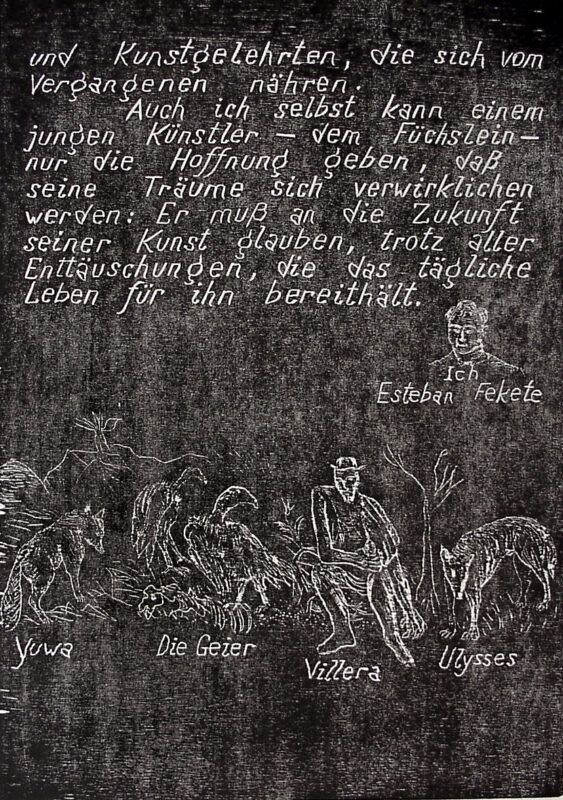 und Kunstgelehrten, die sich vom
Vergangenen nähren.
Auch ich selbst kann einem
jungen Künstler — dem Füchslein —
nur die Hoffnung geben, daß
seine Träume sich verwirklichen
werden: Er muß an die Zukunft
seiner Kunst glauben, trotz aller
Enttäuschungen, die das tägliche
Leben für ihn bereithält.
Ich
Esteban Fekete
Yuwa
Die Geier
Villera
Ulysses